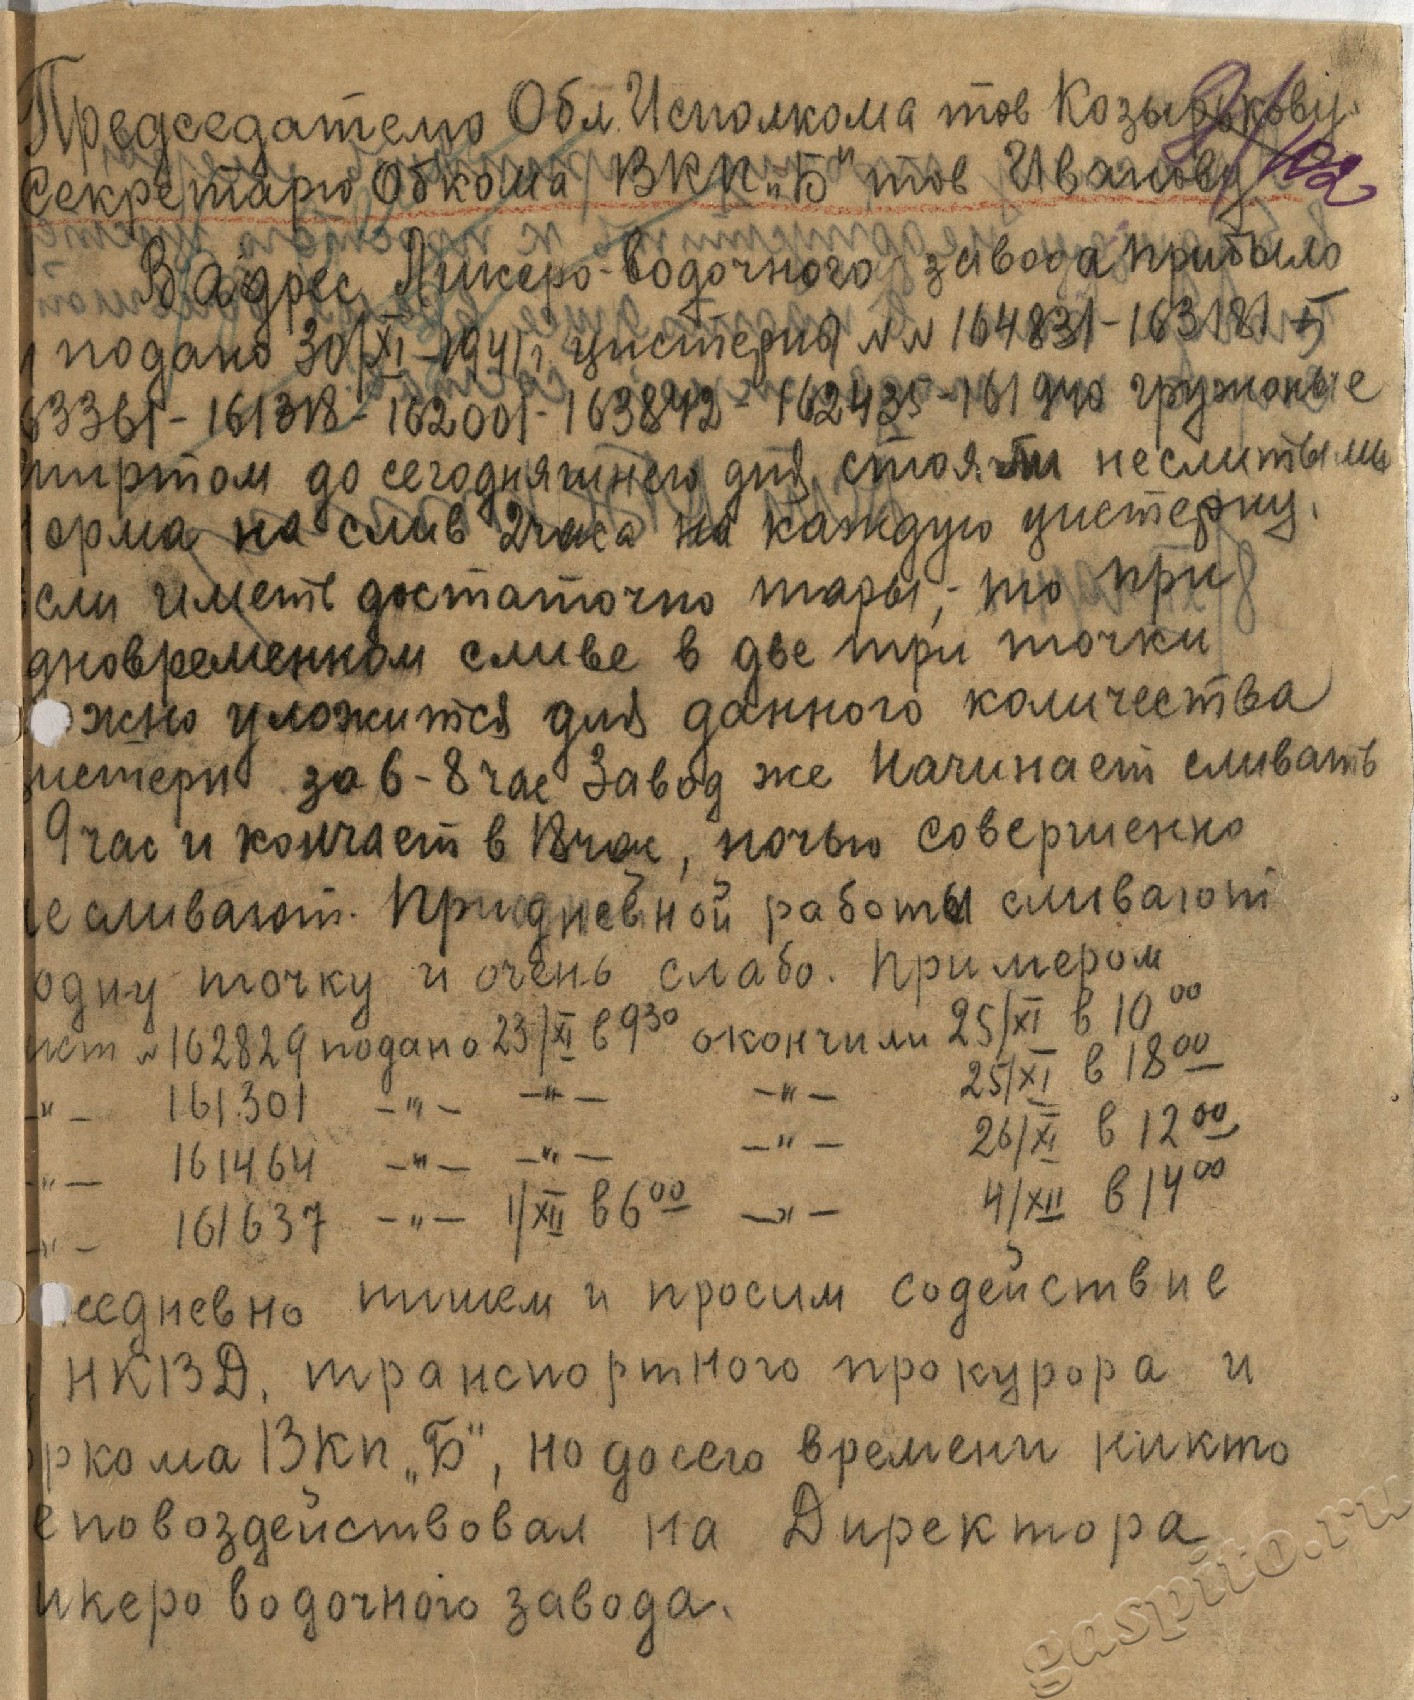 Председателю Обл. Исполкома тов Козырькову.
Секретарю Обкома ВКП „Б" тов Иванову
В адрес Ликеро-водочного завода прибыло
и подано 30/XI-1941 г. цистерны №№ 164831-163181-
63361-161318-162001-163842-162435-161 груженые
пиртом до сегодняшнего дня стоят неслитыми
орма на слив 2 часа на каждую цистерну.
сли иметь достаточно тары, - то при
дновременном сливе в две три точки
ожно уложится для данного количества
истерн за 6-8 час Завод же начинает сливать
9 час и кончает в 18 час, ночью совершенно
е сливают. При дневной работы сливают
одну точку и очень слабо. Примером
ист № 162829 подано 23/XI в 9 30 окончили 25/XI в 10 00
-"- 161301 -"- -"- -"- 25/XI в 18 00
-"- 161464 -"- -"- -"- 26/XI в 12 00
-"- 161637 -"- 1/XII в 6 00 -"- 4/XII в 14 00
жедневно пишем и просим содействие
НКВД, транспортного прокурора и
оркома ВКП „Б", но до сего времени никто
е повоздействовал на Директора
икеро водочного завода.
gaspito.ru